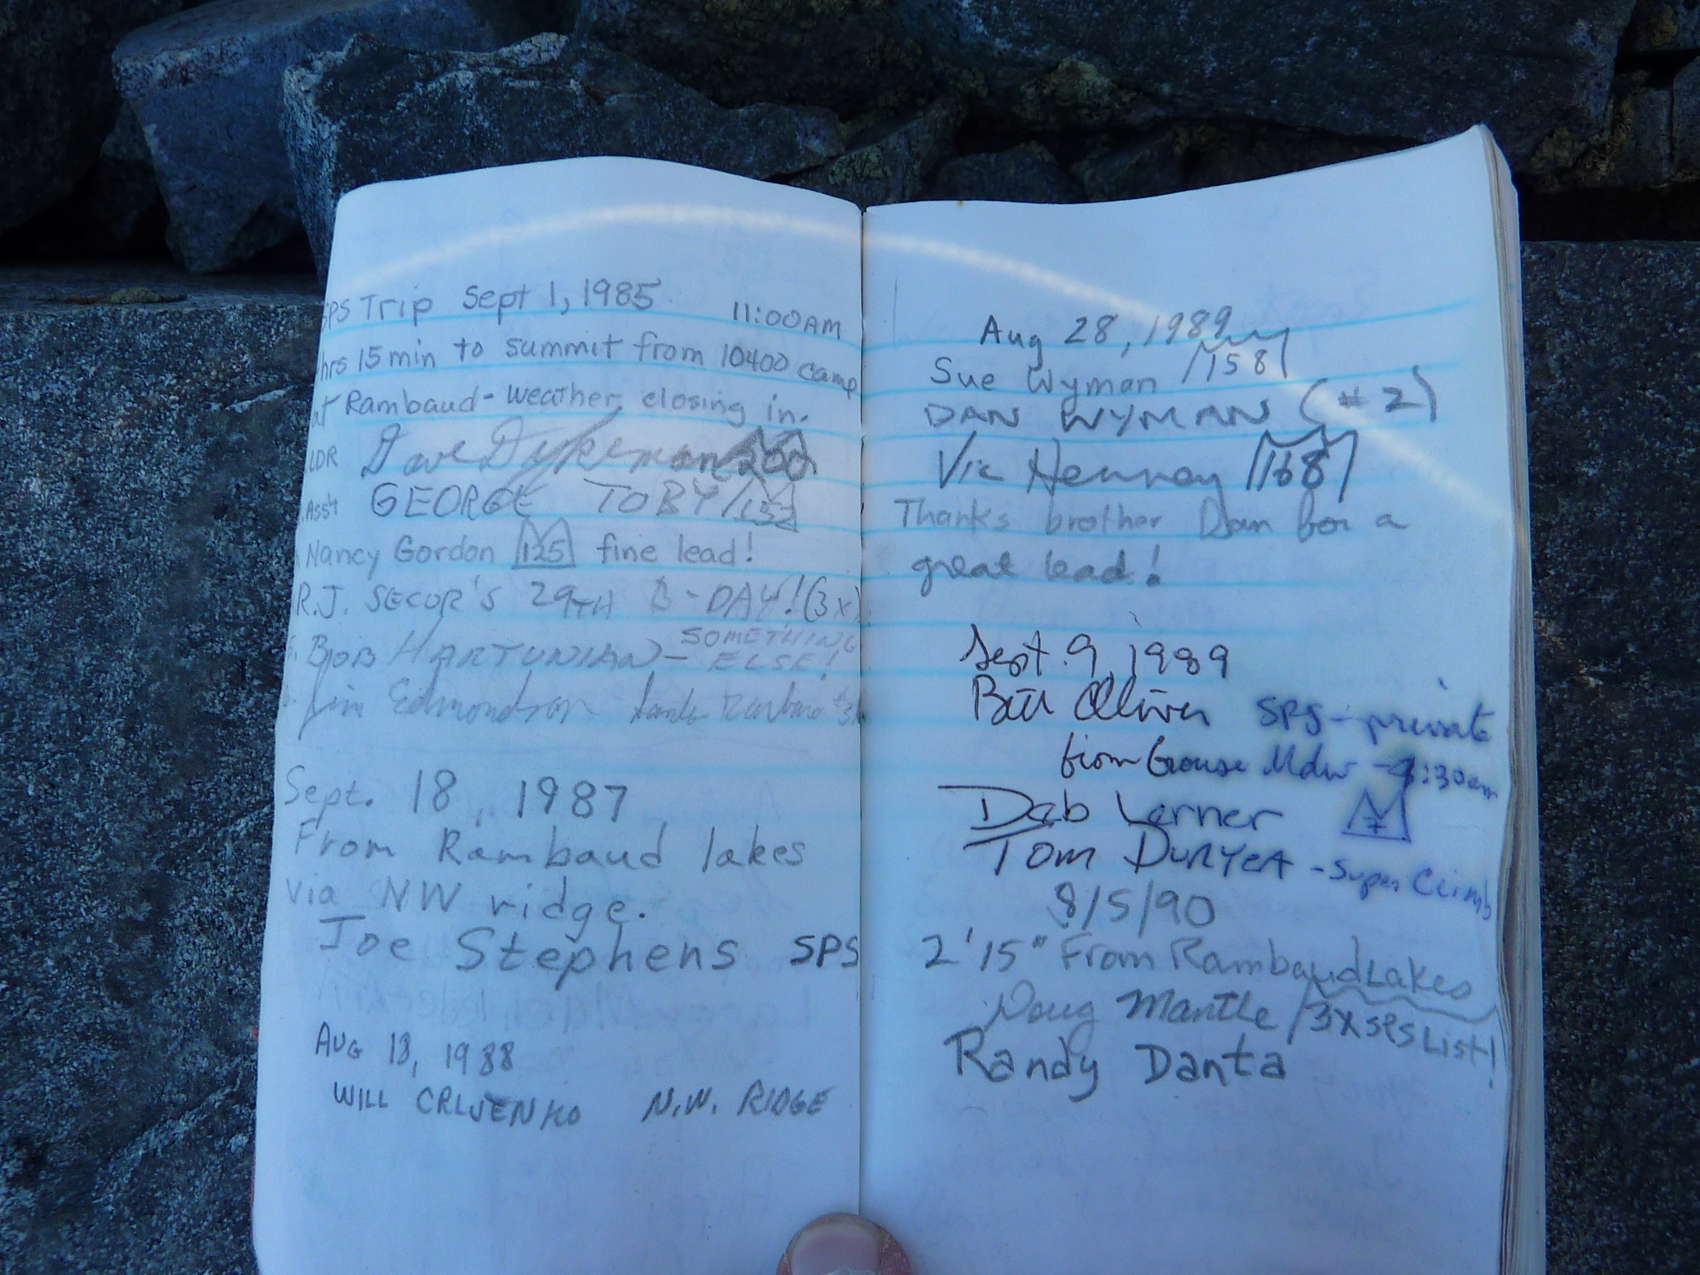 SPS Trip Sept 1, 1985 11:00AM
hrs 15min to summit from 10400 camp
at Rambaud - Weather closing in.
LDR Dave Dykeman 200
Asst GEORGE TOBY 152
Nancy Gordon 125 fine lead!
R.J. SECOR'S 29TH B-DAY! (3x)
BOB HARTUNIAN - SOMETHING
ELSE!
Jim Edmondson
Sept. 18, 1987
From Rambaud lakes
via NW ridge.
Joe Stephens SPS
AUG 13, 1988
WILL CRLJENKO N.W. RIDGE
Aug 28, 1989
Sue Wyman 158
DAN WYMAN (#2)
Vic Henney 168
Thanks brother Dan for a
great lead!
Sept. 9, 1989
Bill Oliver SPS - private
from Grouse Mdw - :30am
Deb Lerner
Tom DURYEA - Super Climb
8/5/90
2'15" From Rambaud Lakes
Doug Mantle 3x SPS List!
Randy Danta